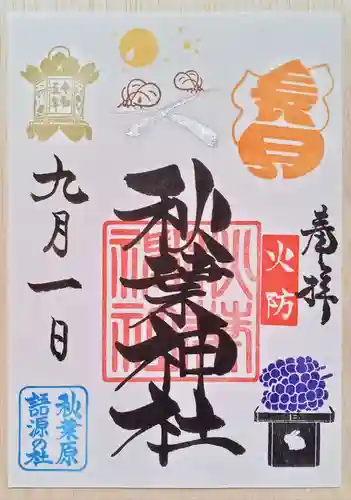 長月
奉拝
火防
秋葉神社
令和五年
九月一日
秋葉原
語源の社